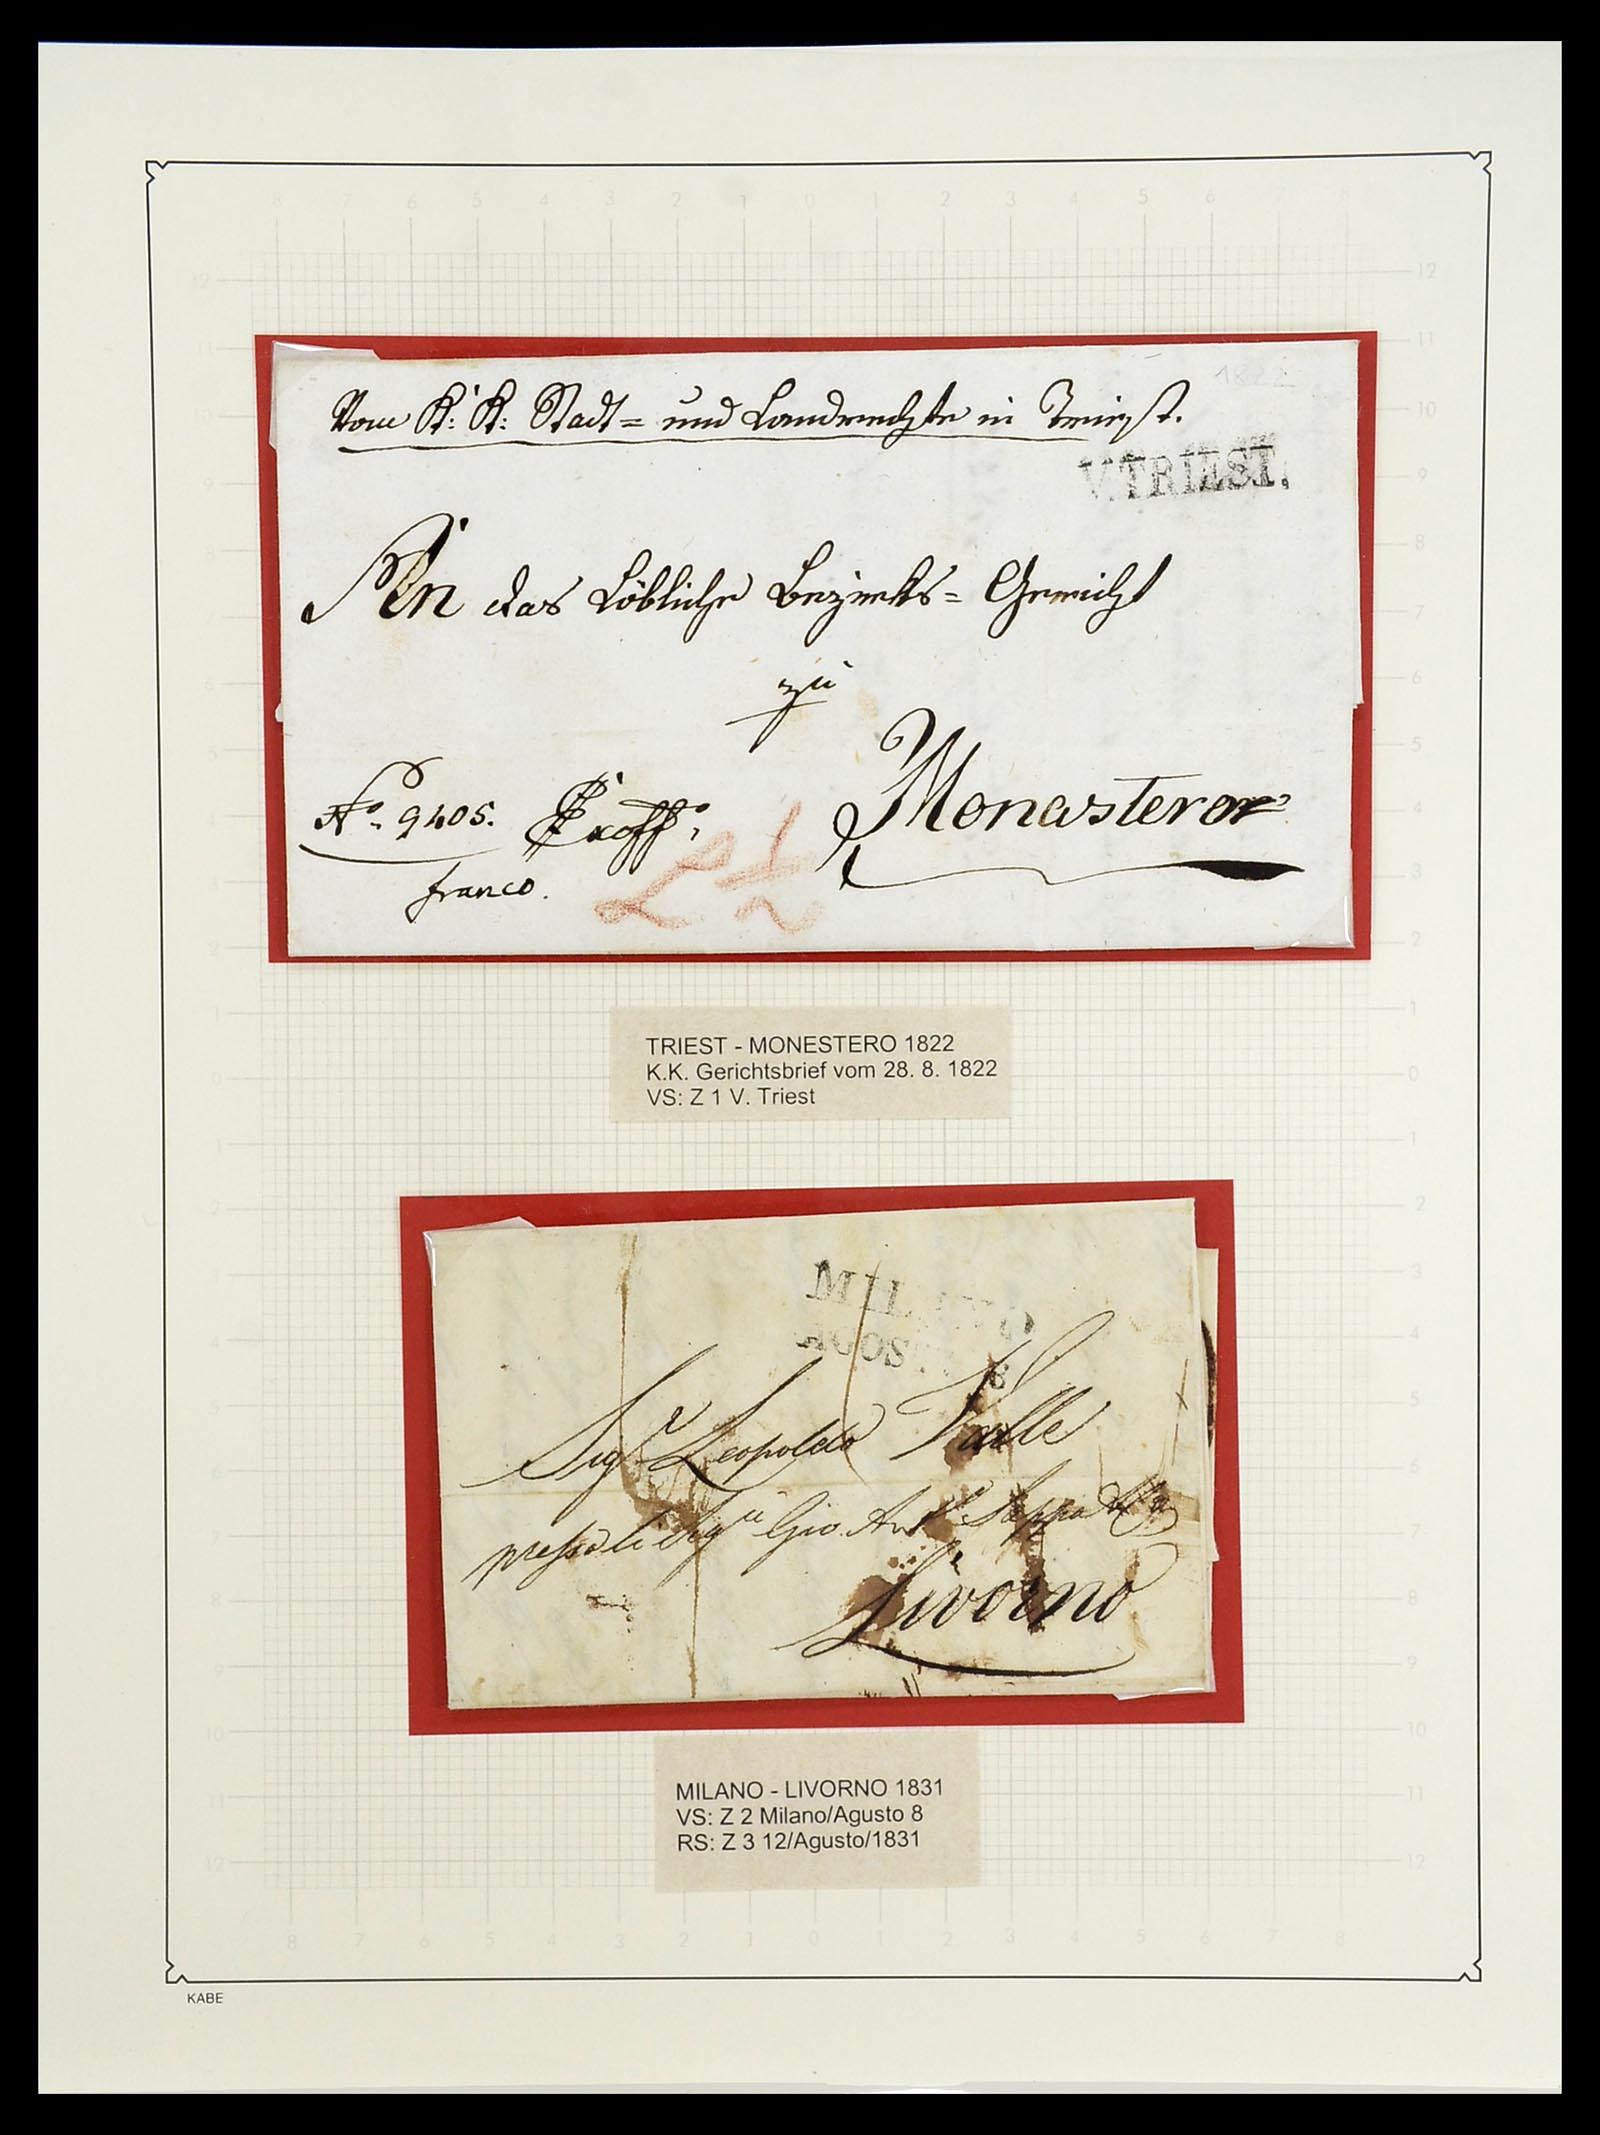 1822
Vom K: K: Stadt= und Landrechte in Triest.
V. TRIEST.
An das Löbliche Bezirks= Gericht
zu
Monastero
No. 9405.
franco.
2 1/2
TRIEST - MONESTERO 1822
K.K. Gerichtsbrief vom 28. 8. 1822
VS: Z 1 V. Triest
MILANO
AGOSTO 8
Sigr Leopoldo Valle
presso li Sigri Gio. Antо
Livorno
MILANO - LIVORNO 1831
VS: Z 2 Milano/Agusto 8
RS: Z 3 12/Agusto/1831
KABE